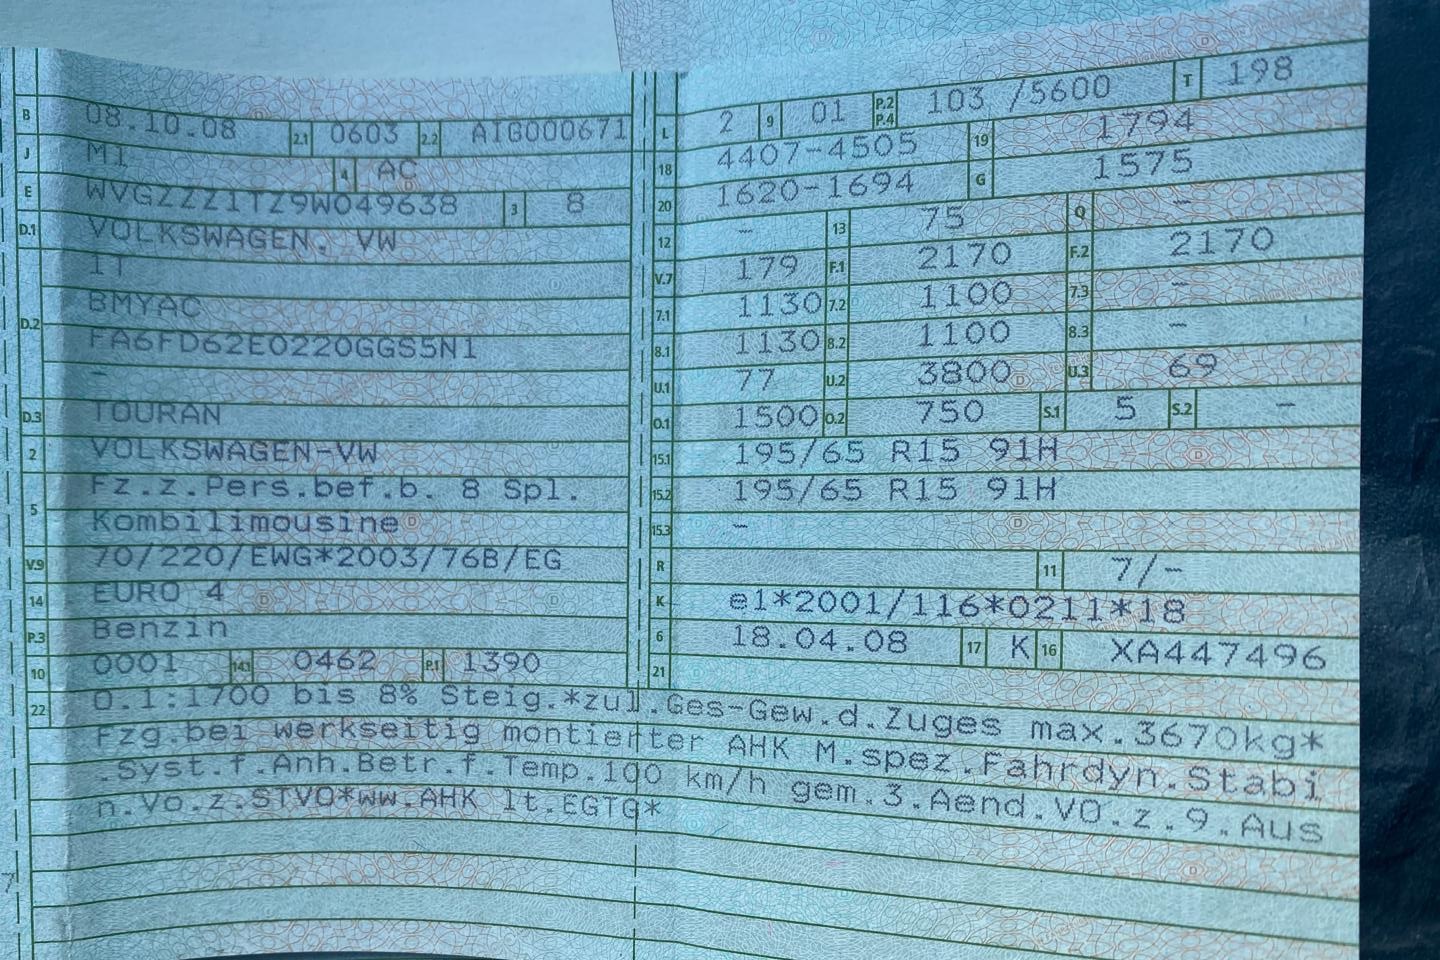 B 08.10.08 2.1 0603 2.2 AIG000671
J M1 4 AC
E WVGZZZ1TZ9W049638 3 8
D.1 VOLKSWAGEN, VW
1T
D.2 BMYAC
FA6FD62E0220GGS5N1
-
D.3 TOURAN
2 VOLKSWAGEN-VW
5 Fz.z.Pers.bef.b. 8 Spl.
Kombilimousine
V.9 70/220/EWG*2003/76B/EG
14 EURO 4
P.3 Benzin
10 0001 14.1 0462 P.1 1390
L 2 9 01 P.2 P.4 103 /5600 T 198
18 4407-4505 19 1794
20 1620-1694 G 1575
12 - 13 75 Q -
V.7 179 F.1 2170 F.2 2170
7.1 1130 7.2 1100 7.3 -
8.1 1130 8.2 1100 8.3 -
U.1 77 U.2 3800 U.3 69
O.1 1500 O.2 750 S.1 5 S.2 -
15.1 195/65 R15 91H
15.2 195/65 R15 91H
15.3 -
R 11 7/-
K e1*2001/116*0211*18
6 18.04.08 17 K 16 XA447496
21
22 O.1:1700 bis 8% Steig.*zul.Ges-Gew.d.Zuges max.3670kg*
Fzg.bei werkseitig montierter AHK M.spez.Fahrdyn.Stabi
.Syst.f.Anh.Betr.f.Temp.100 km/h gem.3.Aend.VO.z.9.Aus
n.Vo.z.STVO*ww.AHK lt.EGTG*
7